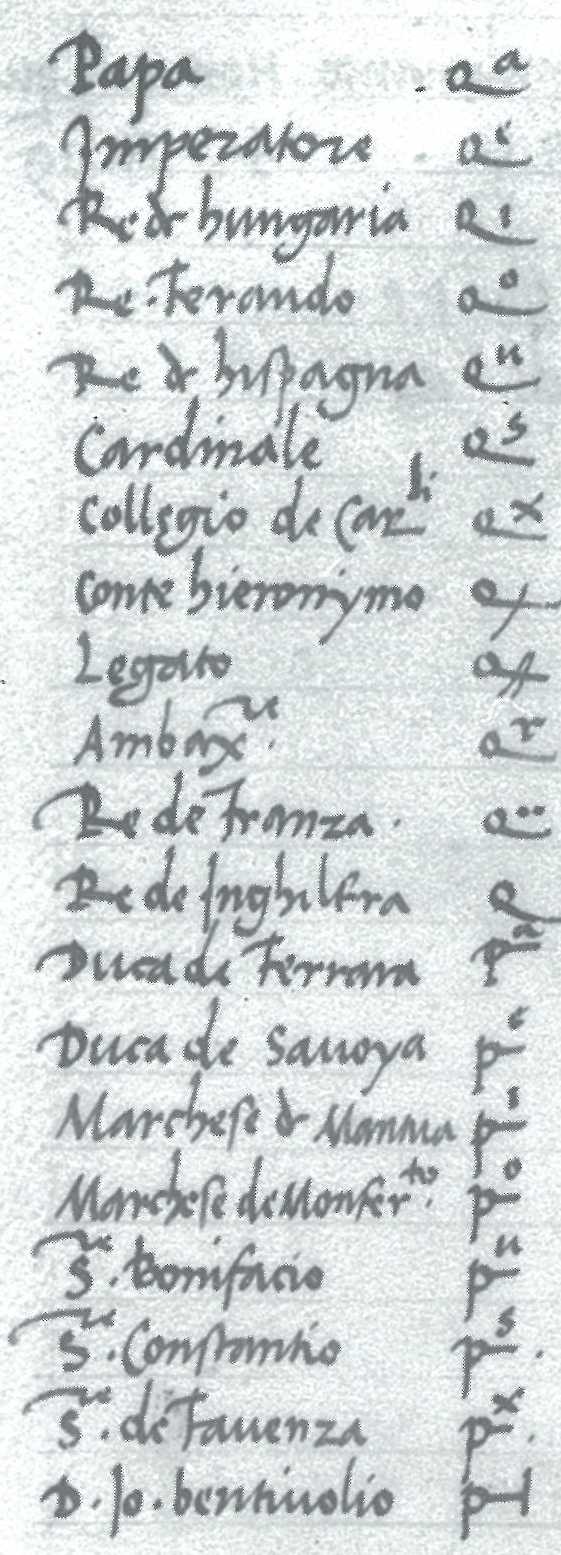 Papa qᵃ
Imperatore qᵉ
Re de hungaria qⁱ
Re Ferando qᵒ
Re de hispagna qᵘ
Cardinale qˢ
Collegio de Carˡⁱ qˣ
Conte hieronymo
Legato
Ambaxʳᵉ qʳ
Re de Franza
Re de Inghilterra
Duca de Ferrara pᵃ
Duca de Sauoya pᵉ
Marchese de Mantua pⁱ
Marchese de Monferᵗᵒ pᵒ
Sʳᵉ. Bonifacio pᵘ
Sʳᵉ. Constantio pˢ.
Sʳᵉ. de Fauenza pˣ.
D. Jo. bentiuolio